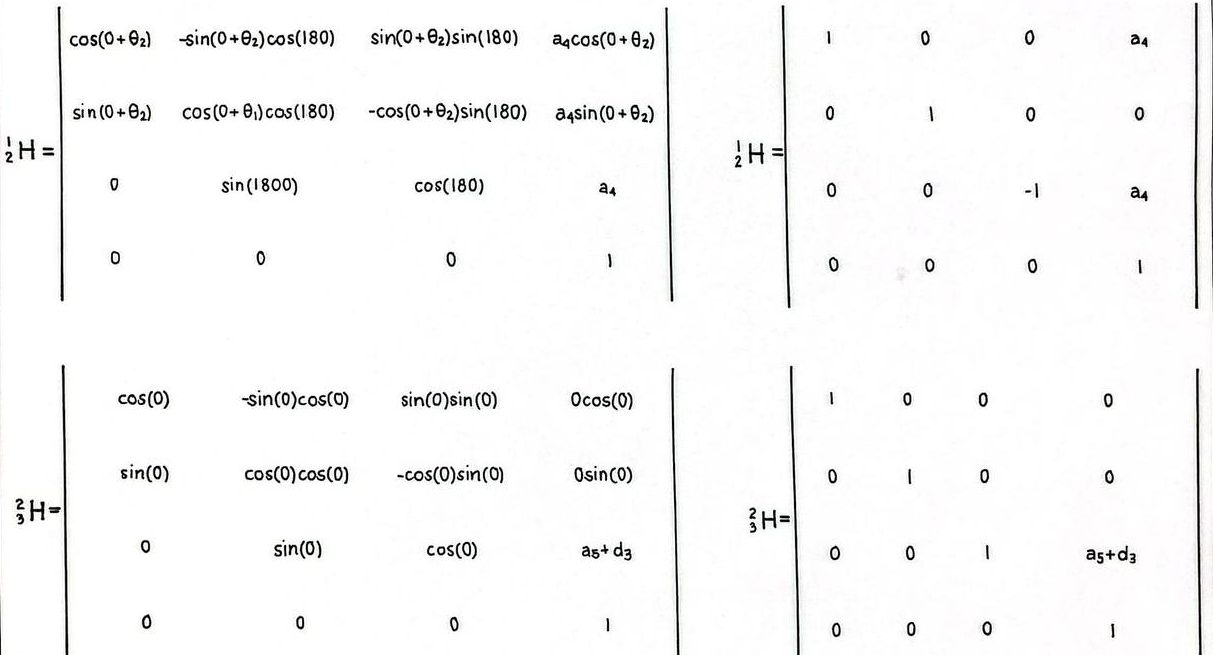 cos(0+θ₂) -sin(0+θ₂)cos(180) sin(0+θ₂)sin(180) a₄cos(0+θ₂)
sin(0+θ₂) cos(0+θ₁)cos(180) -cos(0+θ₂)sin(180) a₄sin(0+θ₂)
¹₂H=
0 sin(1800) cos(180) a₄
0 0 0 1
1 0 0 a₄
0 1 0 0
¹₂H=
0 0 -1 a₄
0 0 0 1
cos(0) -sin(0)cos(0) sin(0)sin(0) 0cos(0)
sin(0) cos(0)cos(0) -cos(0)sin(0) 0sin(0)
²₃H=
0 sin(0) cos(0) a₅+d₃
0 0 0 1
1 0 0 0
0 1 0 0
²₃H=
0 0 1 a₅+d₃
0 0 0 1